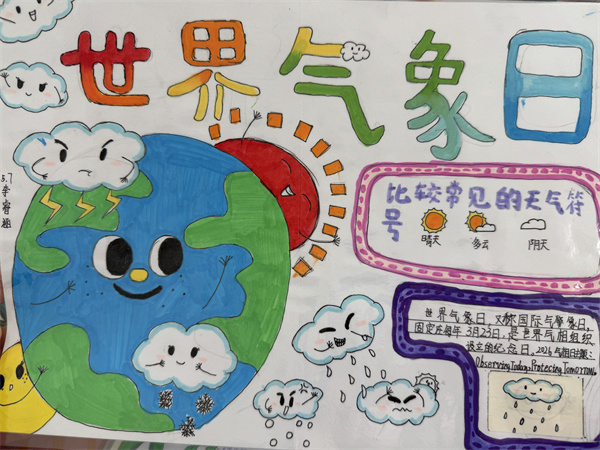 世界气象日
5.7
李睿涵
比较常见的天气符
号
晴天 多云 阴天
世界气象日,又称国际气象日,
固定在每年3月23日,是世界气相组织
设立的纪念日,2026气相日主题:
Observing Today,Protecting Tomorrow